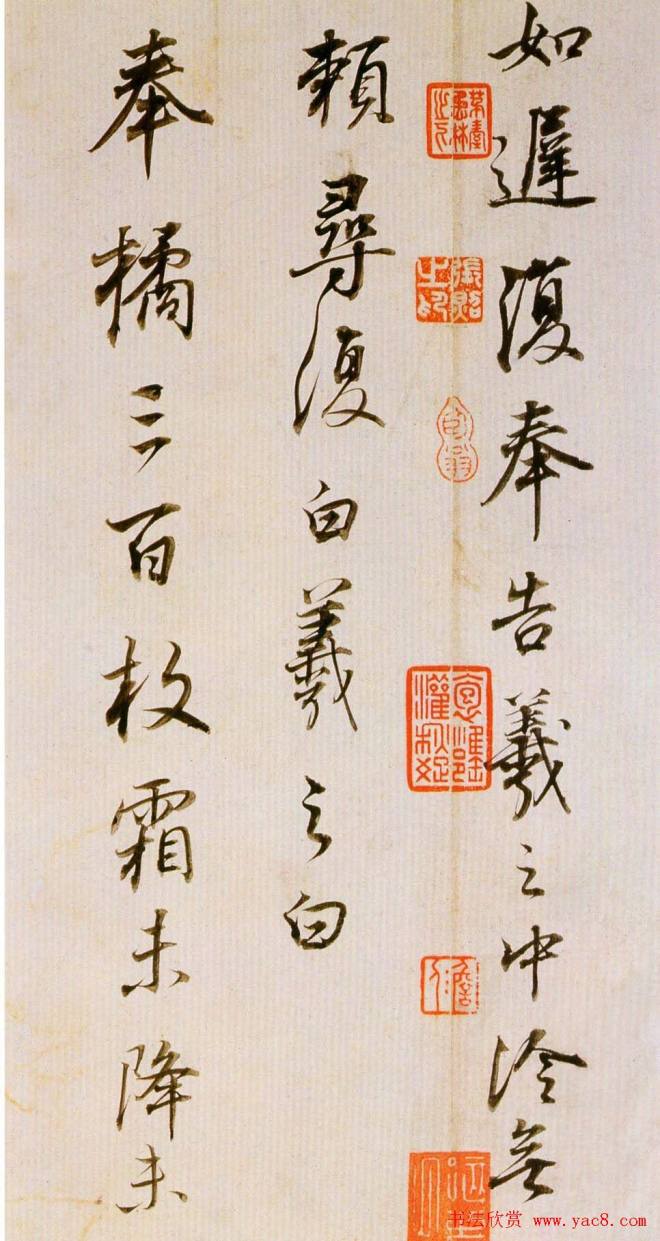 如遲復奉告羲之中冷無
頼尋復白羲之白
奉橘三百枚霜未降未
书法欣赏 www.yac8.com